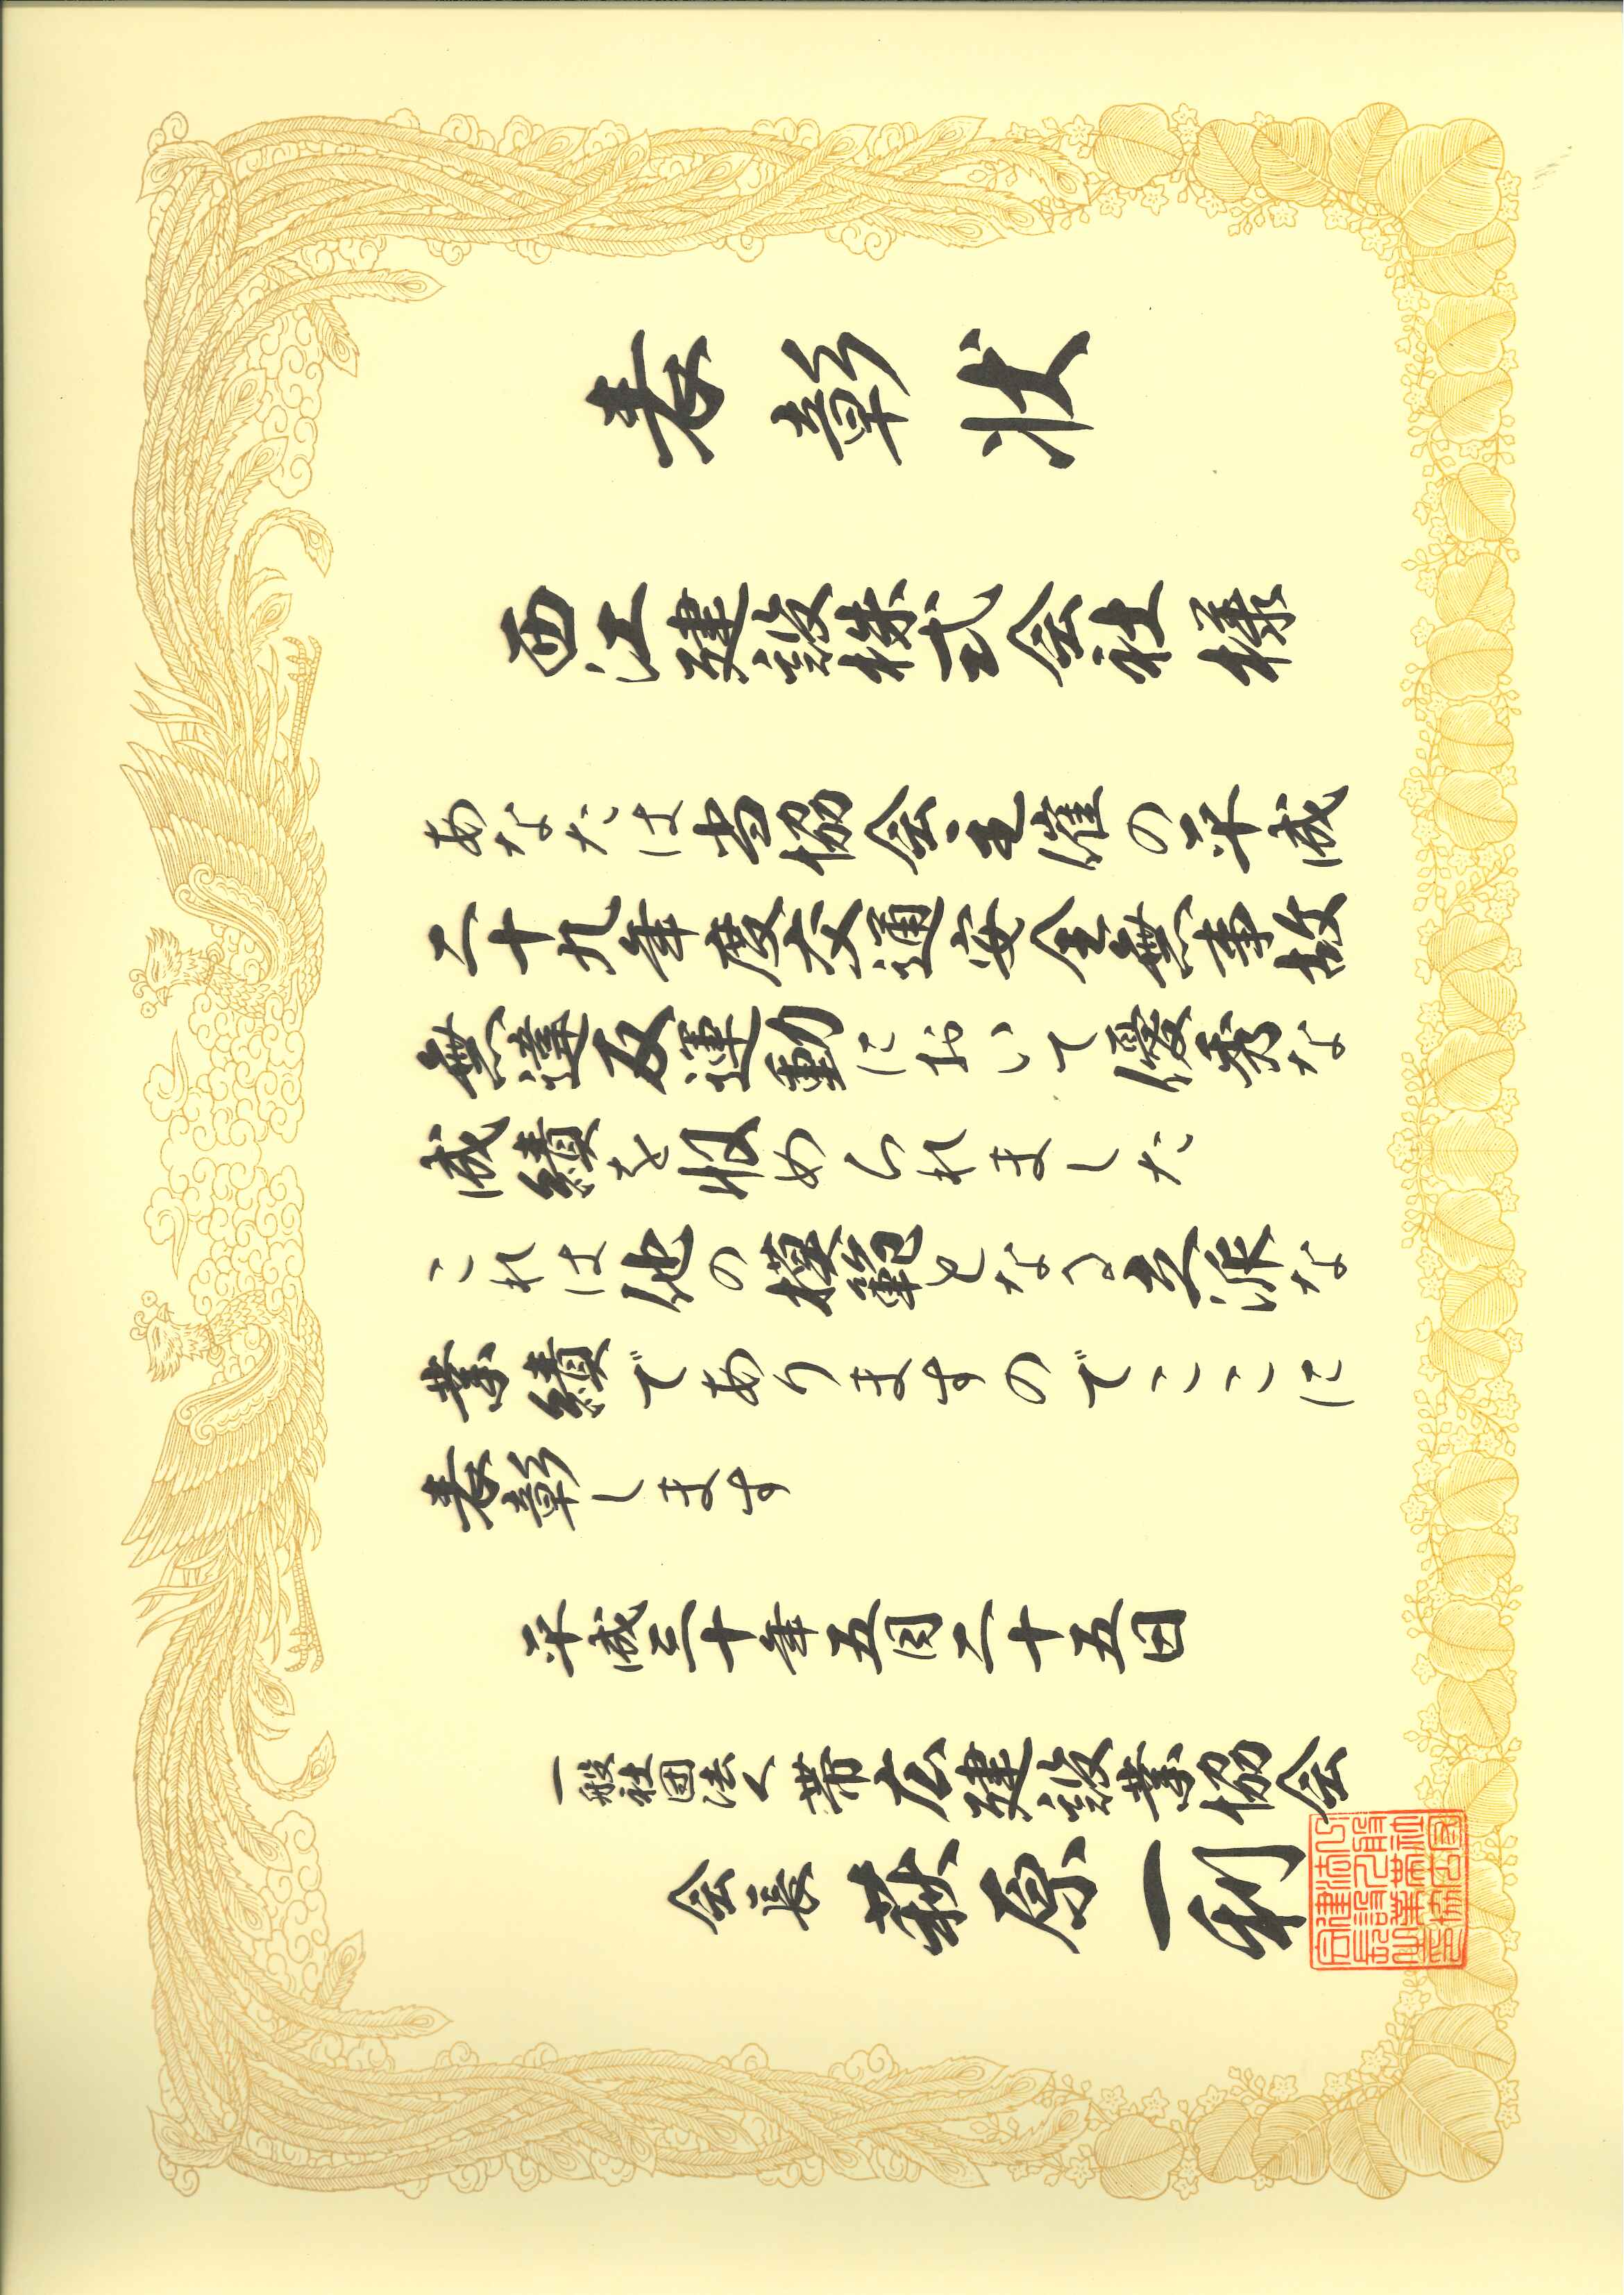 表彰状
西江建設株式会社様
あなたは当協会主催の平成
二十九年度交通安全無事故
無違反運動において優秀な
成績を収められました
これは他の模範となる立派な
業績でありますのでここに
表彰します
平成三十年五月二十五日
一般社団法人帯広建設業協会
会長 萩原一利